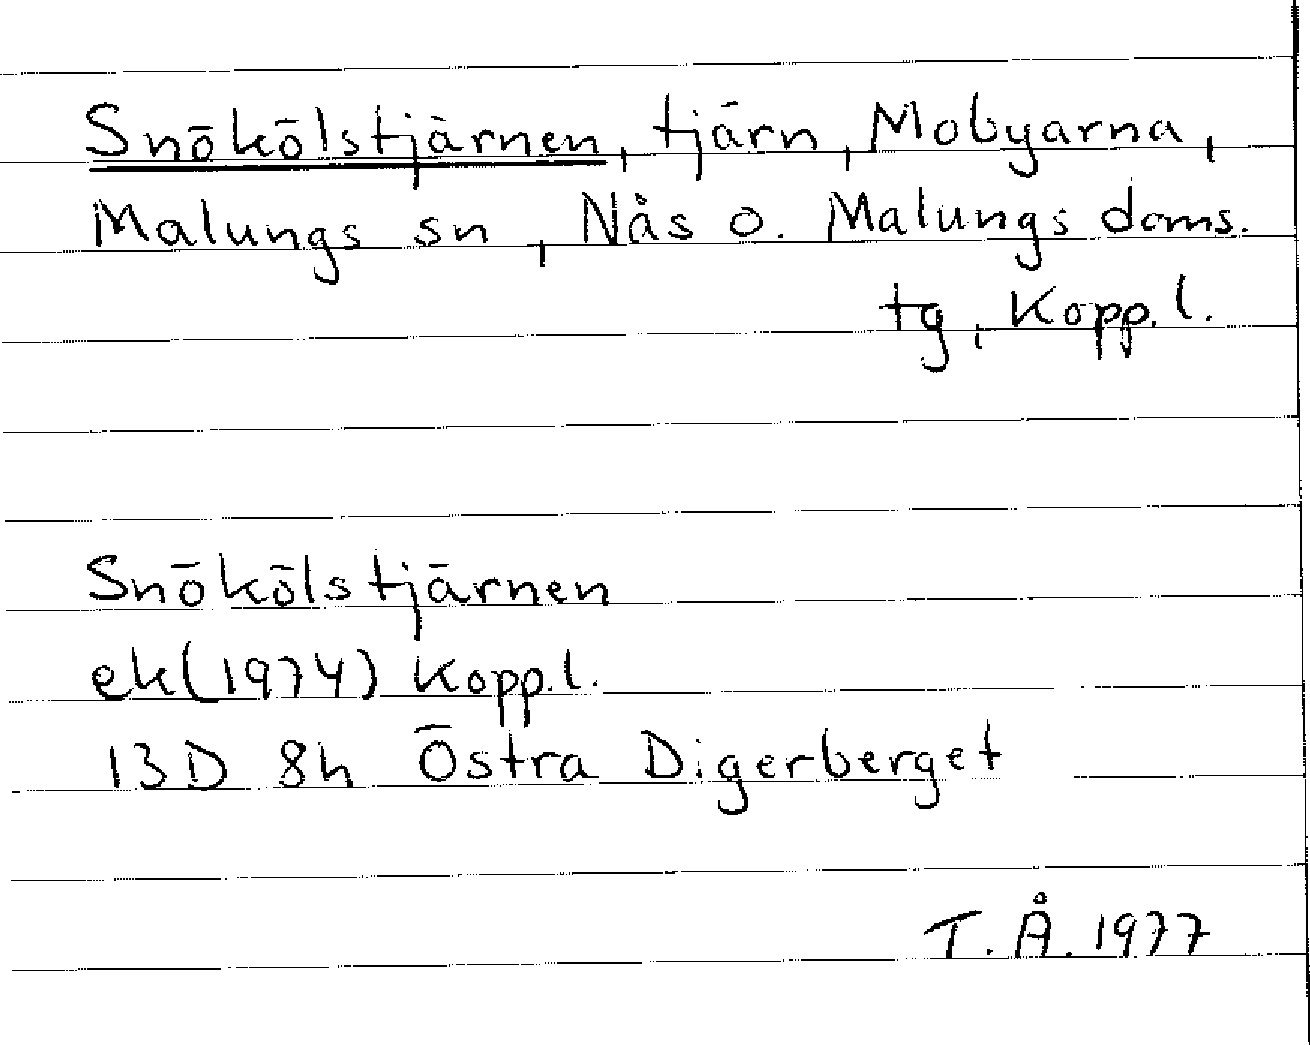 Snökölstjärnen, tjärn, Mobyarna,
Malungs sn, Nås o. Malungs doms.
tg, Kopp.l.
Snökölstjärnen
ek(1974) Kopp.l.
13D 8h Östra Digerberget
T.Å. 1977